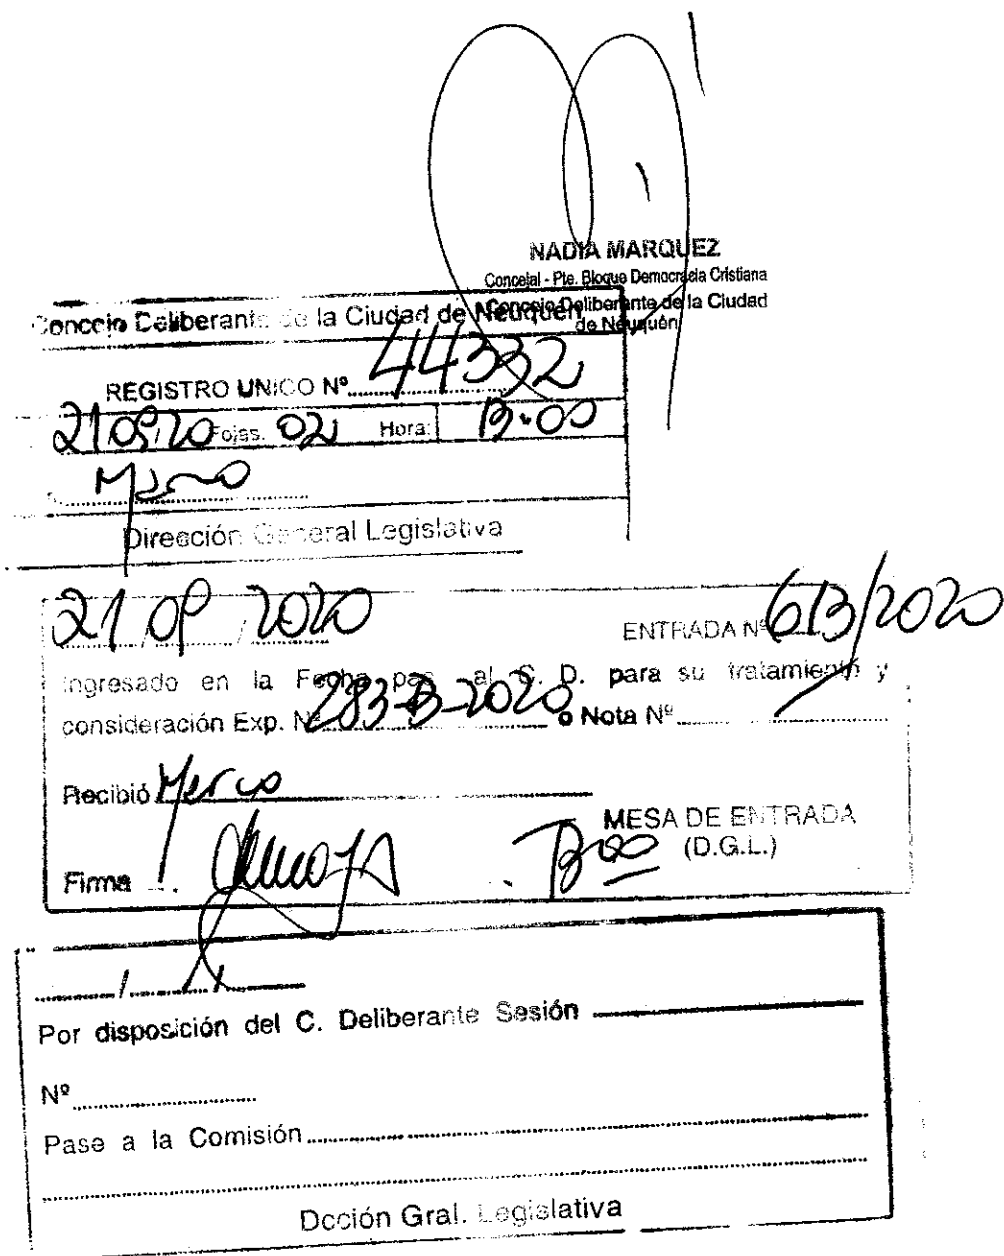 NADIA MARQUEZ
Concejal - Pte. Bloque Democracia Cristiana
Concejo Deliberante de la Ciudad
de Neuquén
Concejo Deliberante de la Ciudad de Neuquén
REGISTRO UNICO Nº 44332
21 09 20 Fojas. 02 Hora: 13:00
Dirección General Legislativa
21 09 2020
ENTRADA Nº 613/2020
Ingresado en la Fecha pasa al C. D. para su tratamiento y
consideración Exp. Nº 283-B-2020 o Nota Nº
Recibió
MESA DE ENTRADA
(D.G.L.)
Firma
Por disposición del C. Deliberante Sesión
Nº
Pase a la Comisión
Dcción Gral. Legislativa